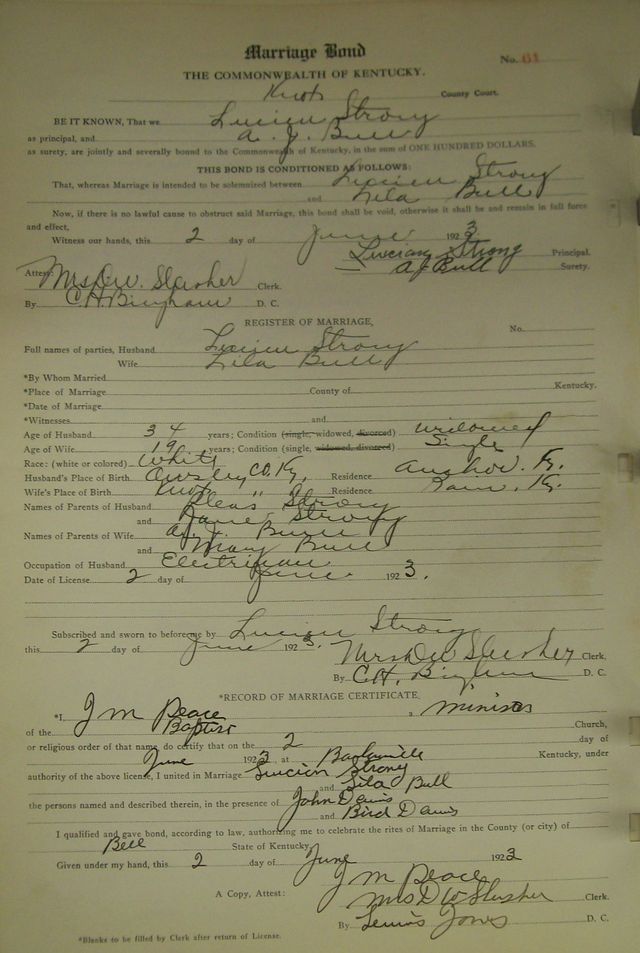 Marriage Bond
No. 61
THE COMMONWEALTH OF KENTUCKY.
Knox County Court.
BE IT KNOWN, That we Lucien Strong
as principal, and A. J. Bull
as surety, are jointly and severally bound to the Commonwealth of Kentucky, in the sum of ONE HUNDRED DOLLARS.
THIS BOND IS CONDITIONED AS FOLLOWS:
That, whereas Marriage is intended to be solemnized between Lucien Strong
and Lila Bull
Now, if there is no lawful cause to obstruct said Marriage, this bond shall be void, otherwise it shall be and remain in full force
and effect,
Witness our hands, this 2 day of June 1923
Lucian Strong Principal.
A J Bull Surety.
Attest: Mrs. D. W. Slusher Clerk.
By C. H. Bingham D. C.
REGISTER OF MARRIAGE,
No.
Full names of parties, Husband Lucien Strong
Wife Lila Bull
*By Whom Married
*Place of Marriage County of Kentucky.
*Date of Marriage
*Witnesses and
Age of Husband 34 years; Condition (single, widowed, divorced) widowed
Age of Wife 19 years; Condition (single, widowed, divorced) Single
Race: (white or colored) White
Husband's Place of Birth Owsley Co. Ky. Residence Ky.
Wife's Place of Birth Knox " " Residence Ky.
Names of Parents of Husband Strong
and Jane Strong
Names of Parents of Wife A. J. Bull
and Mary Bull
Occupation of Husband Electrician
Date of License 2 day of June 1923.
Subscribed and sworn to before me by Lucien Strong
this 2 day of June 1923.
Mrs D W Slusher Clerk.
By C. H. Bingham D. C.
*RECORD OF MARRIAGE CERTIFICATE,
*I, J M Peace a
of the Baptist Church,
or religious order of that name, do certify that on the 2 day of
June 1923 at Kentucky, under
authority of the above license, I united in Marriage Lucion Strong
and Lila Bull
the persons named and described therein, in the presence of John Davis
and Bird Davis
I qualified and gave bond, according to law, authorizing me to celebrate the rites of Marriage in the County (or city) of
Bell State of Kentucky
Given under my hand, this 2 day of June 1923
J M Peace
A Copy, Attest: Mrs D W Slusher Clerk.
By Jones D. C.
*Blanks to be filled by Clerk after return of License.